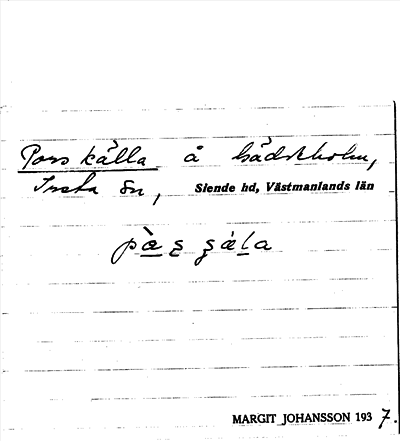 Pors källa å Lädkholm,
Irsta sn, Siende hd, Västmanlands län
MARGIT JOHANSSON 1937.